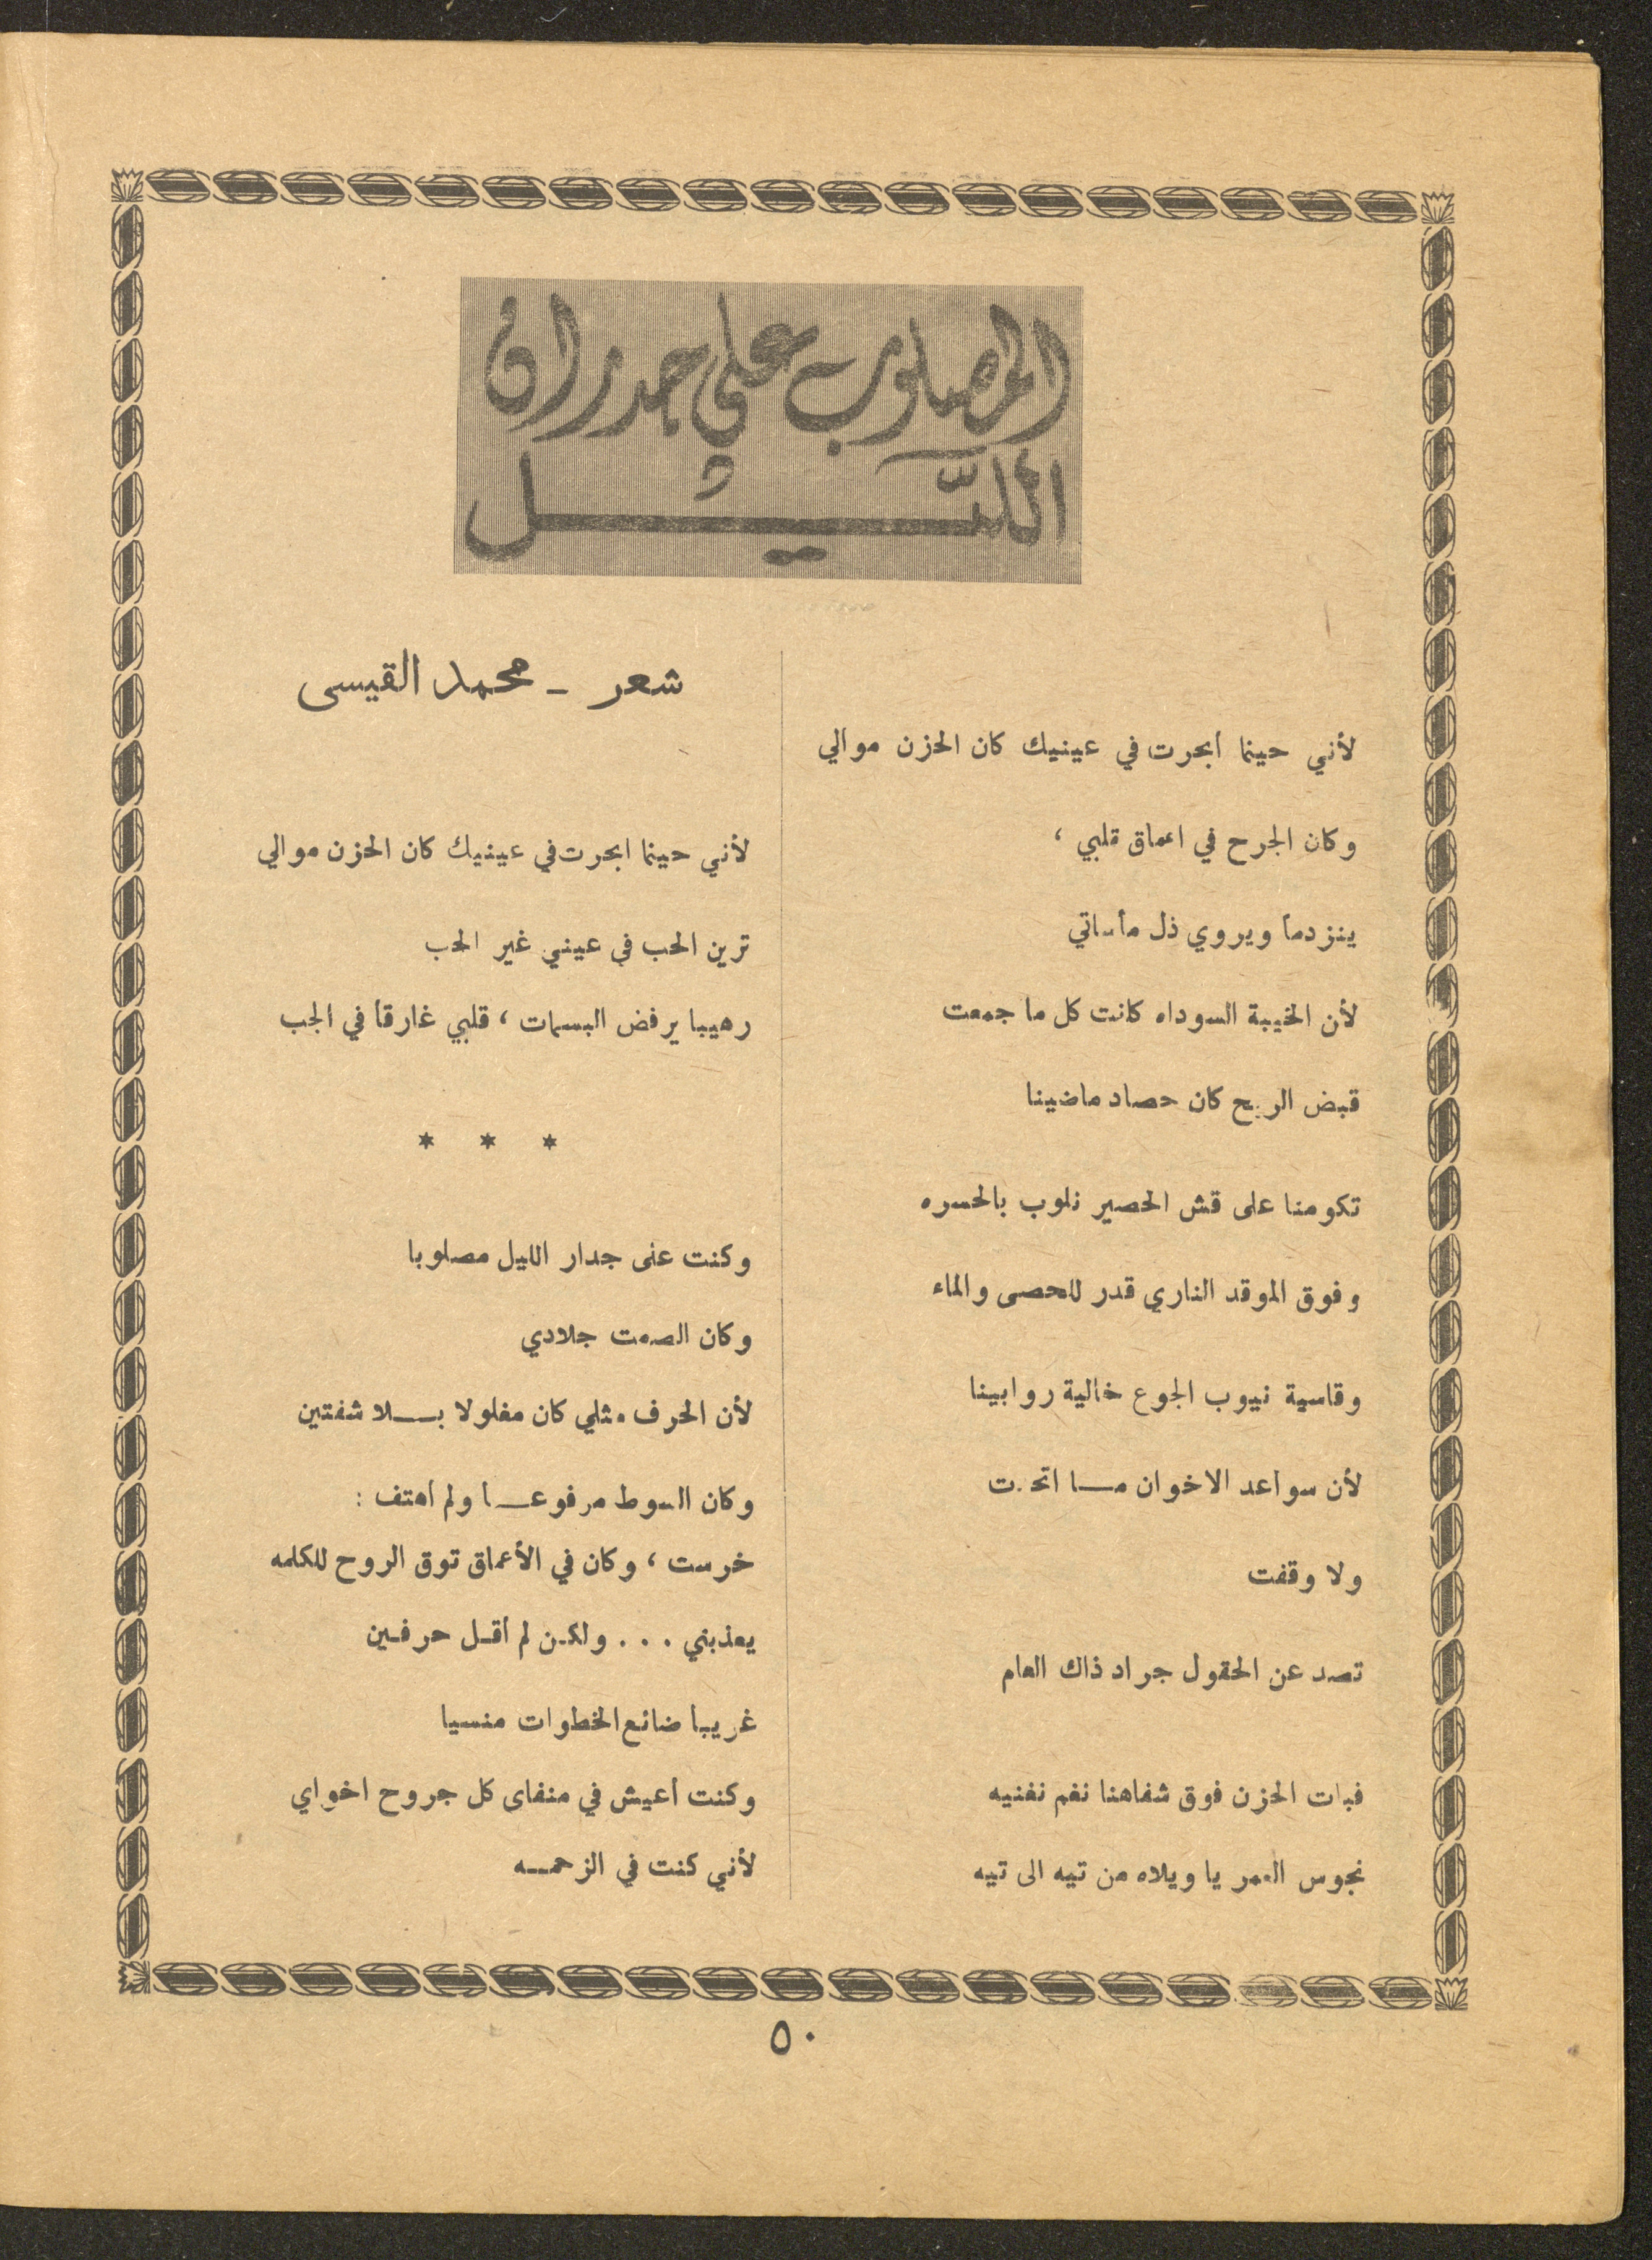 المصلوب على جدران
الليل
شعر - محمد القيسى
لأني حينما أبحرت في عينيك كان الحزن موالي
وكان الجرح في اعماق قلبي ،
ينز دماً ويروي ذل مأساتي
لأن الخيبة السوداء كانت كل ما جمعت
قبض الريح كان حصاد ماضينا
تكومنا على قش الحصير نلوب بالحسره
وفوق الموقد الناري قدر للحصى والماء
وقاسية نيوب الجوع خالية روابينا
لأن سواعد الاخوان مــا اتحدت
ولا وقفت
تصد عن الحقول جراد ذاك العام
فبات الحزن فوق شفاهنا نغم نغنيه
نجوس العمر يا ويلاه من تيه الى تيه
لأني حينما ابحرت في عينيك كان الحزن موالي
ترين الحب في عيني غير الحب
رهيبا يرفض البسمات ، قلبي غارقاً في الجب
* * *
وكنت على جدار الليل مصلوبا
وكان الصمت جلادي
لأن الحرف مثلي كان مغلولا بــلا شفتين
وكان السوط مرفوعــاً ولم أهتف :
خرست ، وكان في الأعماق توق الروح للكلمه
يعذبني . . . ولكن لم أقل حرفين
غريباً ضائع الخطوات منسيا
وكنت أعيش في منفاى كل جروح اخواي
لأني كنت في الزحمــه
٥٠